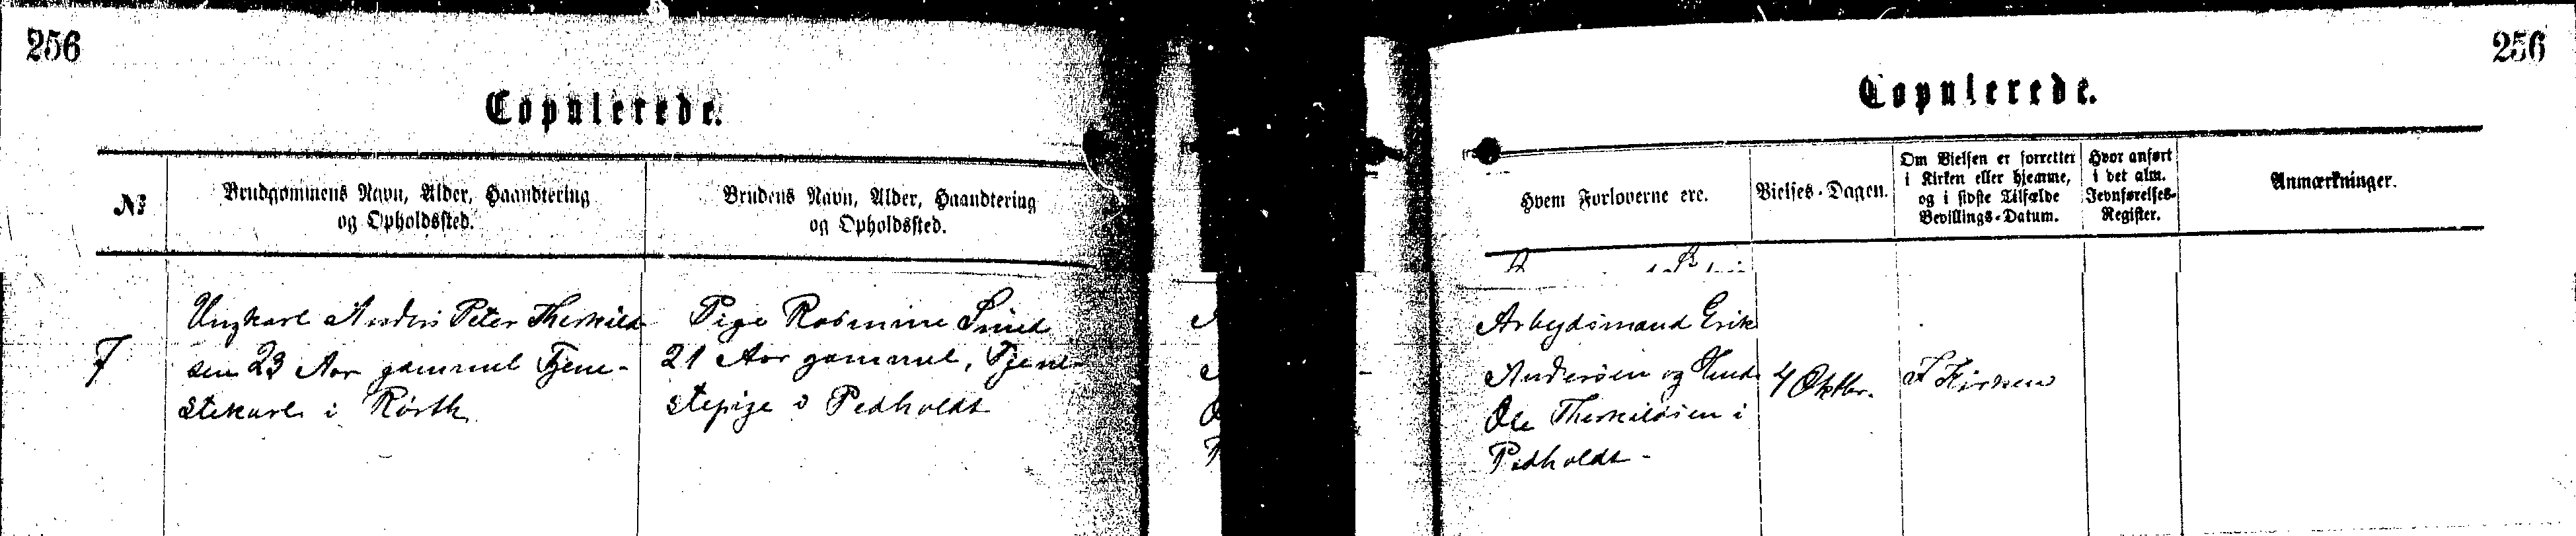 256
256
Copulerede.
Copulerede.
№
Brudgommens Navn, Alder, Haandtering
og Opholdssted.
Brudens Navn, Alder, Haandtering
og Opholdssted.
Hvem Forloverne ere.
Vielses-Dagen.
Om Vielsen er forrettet
i Kirken eller hjemme,
og i sidste Tilfælde
Bevillings-Datum.
Hvor anført
i det alm.
Jevnførelses-
Register.
Anmærkninger.
7
Ungkarl Anders Peter Therkild
sen 23 Aar gammel Tjene-
stekarl i Rörth
Pige Rasmine
21 Aar gammel, Tjene-
stepige i Pedholdt
Arbejdsmand Erik
Andersen og
Ole Therkildsen i
Pedholdt -
4 Oktbr.
I Kirken